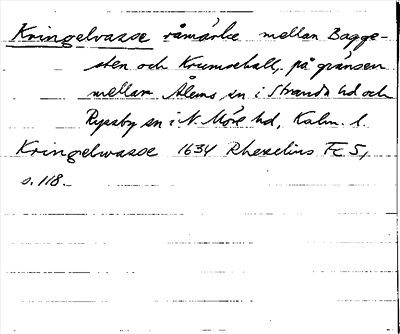 Kringelvasse råmärke mellan Bagge-
sten och Krumsehall, på gränsen
mellan Ålems sn i Stranda hd och
Ryssby sn i N. Möre hd, Kalm. l.
Kringelwasse 1634 Rhezelius Fc 5,
s. 118.